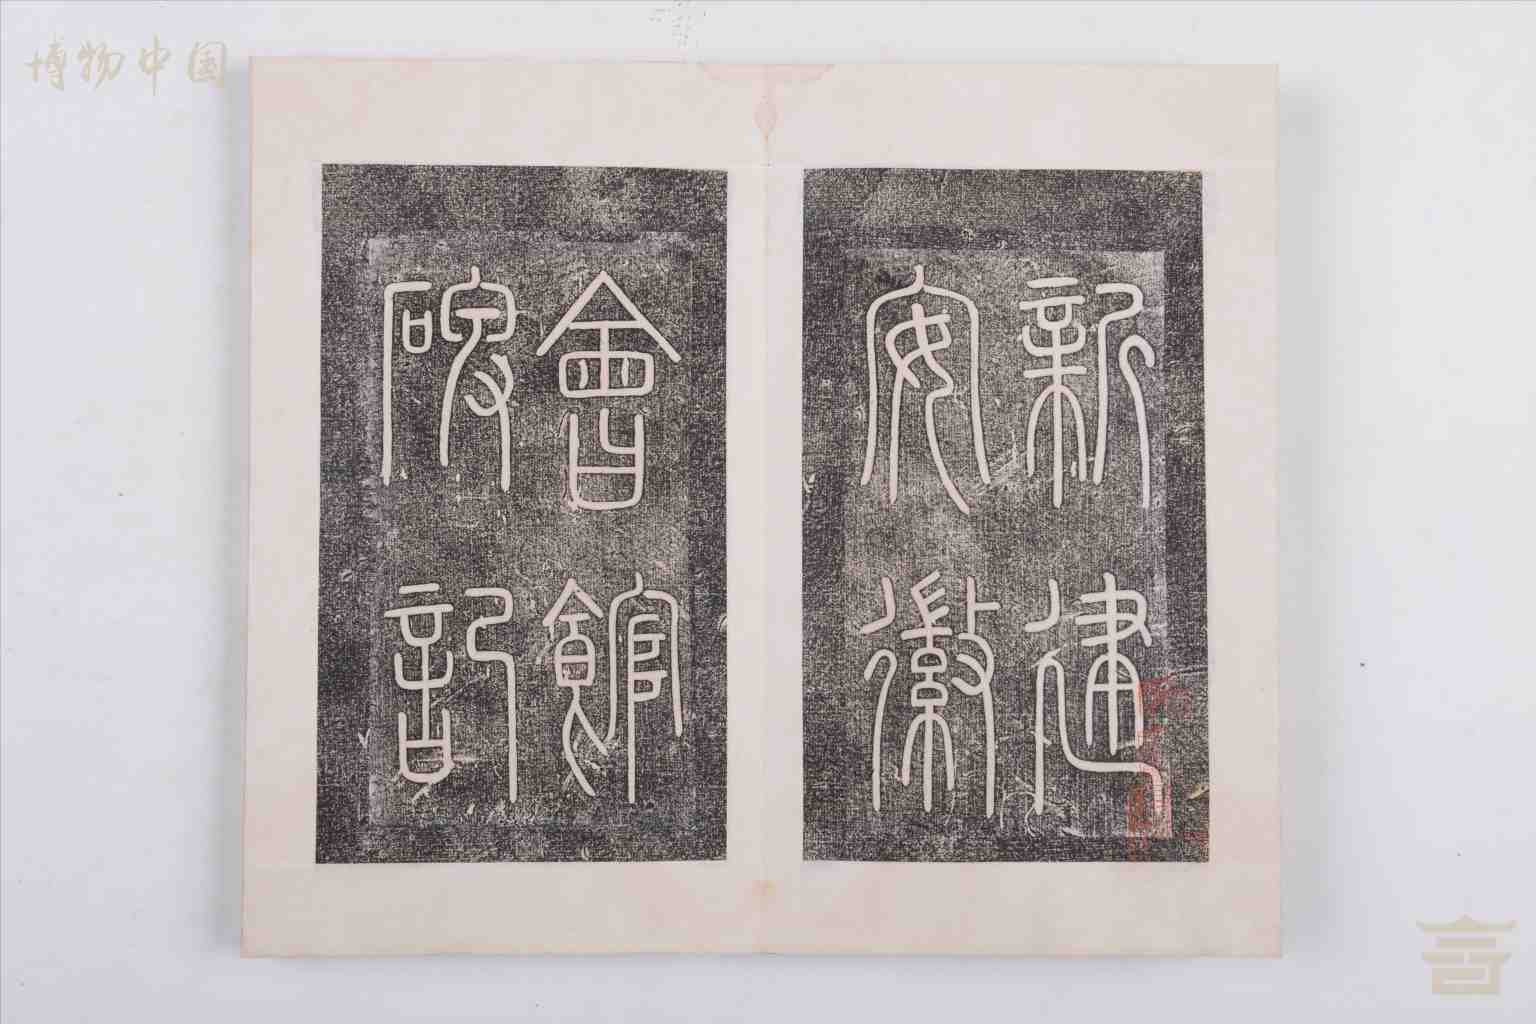 新建
安徽
會館
碑記
博物中国